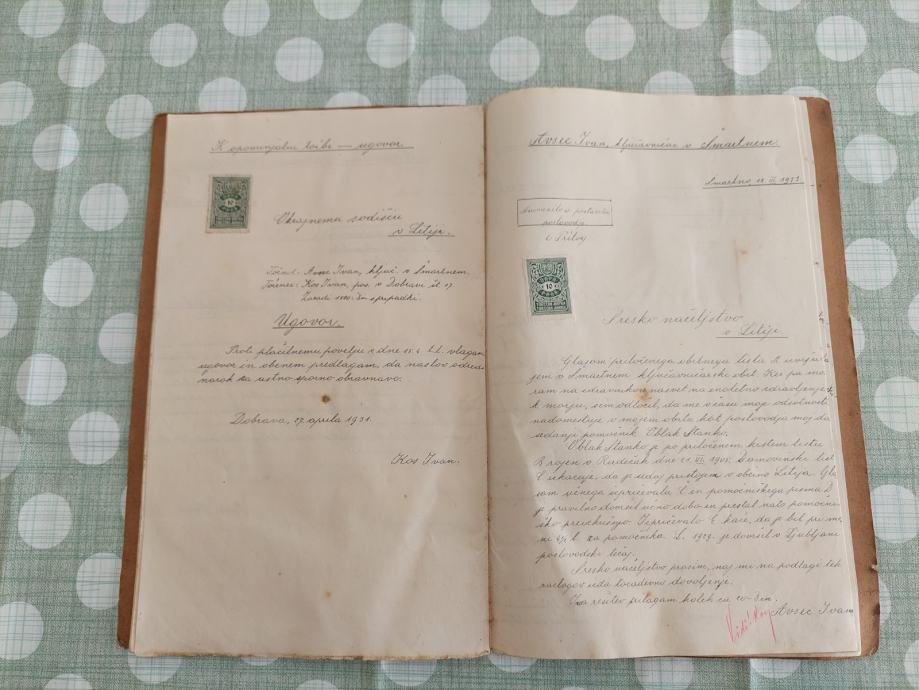 K opominjalni tožbi — ugovor.
10
Okrajnemu sodišču
v Litiji.
Tožnik: Avsec Ivan, ključ. v Šmartnem.
Toženec: Kos Ivan, pos. v Dobravi št 17.
Zaradi Din s pripadki.
Ugovor.
Proti plačilnemu povelju z dne t. l. vlagam
ugovor in obenem predlagam, da naslov odredi
narok za ustno sporno obravnavo.
Dobrava, 27. aprila 1931.
Kos Ivan.
Avsec Ivan, ključavničar v Šmartnem.
Šmartno, 18. VI. 1931.
Naznanilo o postavitvi
poslovodje
Prilog
10
Sresko načelstvo
v Litiji.
Glasom priloženega obrtnega lista A izvršu-
jem v Šmartnem ključavničarsko obrt. Ker pa mo-
ram na zdravnikov nasvet na enoletno zdravljenje
k morju, sem odločil, da me v času moje odsotnosti
nadomestuje v mojem obratu kot poslovodja moj da-
sedanji pomočnik Oblak Stanko.
Oblak Stanko je po priloženem krstnem listu
B rojen v dne VI. Domovinski list
C izkazuje, da je sedaj pristojen v občino Litija. Gla-
som učnega izpričevala in pomočniškega pisma
je pravilno dovršil učno dobo in prestal nato pomočni-
ško preizkušnjo. Izpričevalo kaže, da je bil pri me-
ni l. za pomočnika. L. 1929. je dovršil v Ljubljani
poslovodski tečaj.
Sresko načelstvo prosim, naj mi na podlagi teh
razlogov izda tozadevno dovoljenje.
Za rešitev prilagam kolek za 20 Din.
Avsec Ivan